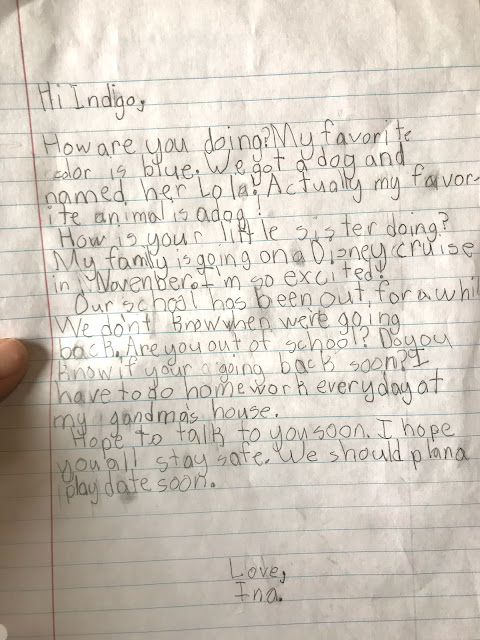 Hi Indigo,
How are you doing? My favorite
color is blue. We got a dog and
named her Lola! Actually my favor-
ite animal is a dog!
How is your little sister doing?
My family is going on a Disney cruise
in Novenber. I'm so excited!
Our school has been out for a whil
We dont know when were going
back. Are you out of school? Do you
know if your going back soon? I
have to do homework everyday at
my gandmas house.
Hope to talk to you soon. I hope
you all stay safe. We should plan a
play date soon.
Love,
Ina.